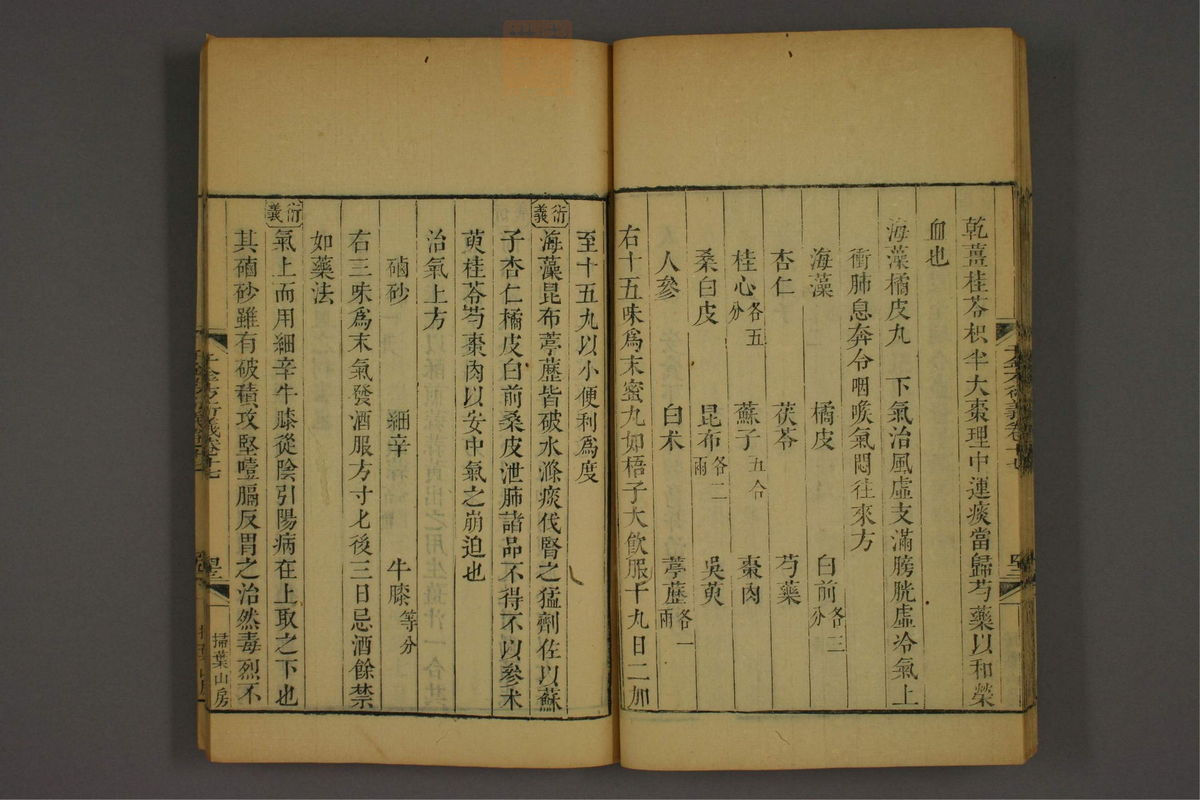 乾薑桂苓枳半大棗理中運痰當歸芍藥以和榮
血也
海藻橘皮丸　下氣治風虛支滿膀胱虛冷氣上
衝肺息奔令咽喉氣悶往來方
海藻　橘皮　白前各三分
杏仁　茯苓　芍藥
桂心各五分　蘇子五合　棗肉
桑白皮　昆布各二兩　吳萸
人參　白朮　葶藶各一兩
右十五味爲末蜜丸如梧子大飮服十九日二加
至十五丸以小便利爲度
衍義　海藻昆布葶藶皆破水滌痰伐腎之猛劑佐以蘇
子杏仁橘皮白前桑皮泄肺諸品不得不以參朮
萸桂苓芍棗肉以安中氣之崩迫也
治氣上方
硇砂　細辛　牛膝等分
右三味爲末氣發酒服方寸匕後三日忌酒餘禁
如藥法
衍義　氣上而用細辛牛膝從陰引陽病在上取之下也
其硇砂雖有破積攻堅噎膈反胃之治然毒烈不
掃葉山房